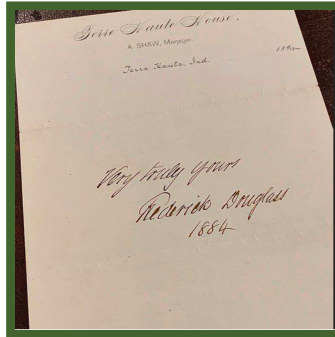 Terre Haute House.
A. SHAW, Manager.
Terre Haute, Ind.
Very truly yours
Frederick Douglass
1884